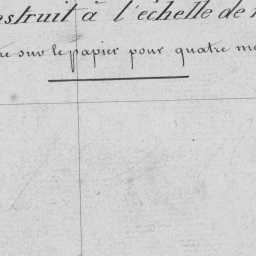 nstruit à l'échelle de
re sur le papier pour quatre m